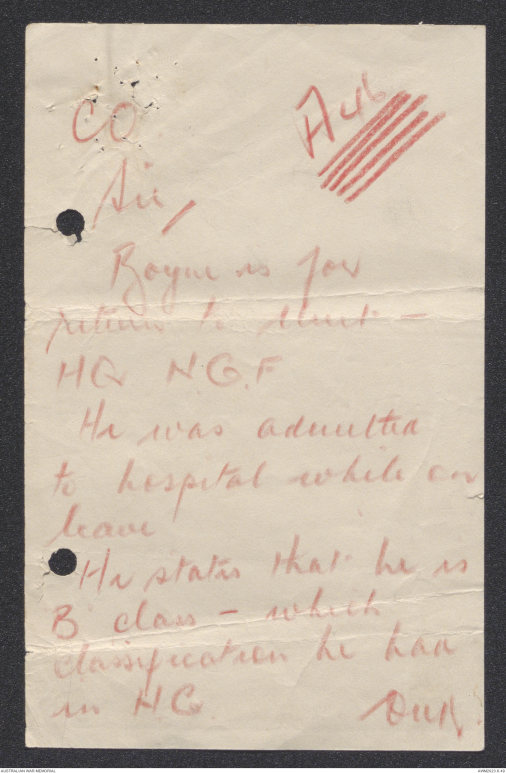 CO
Sir,
Boyne is for
return to unit -
HQ N.G.F
He was admitted
to hospital while on
leave
He states that he is
B class - which
classification he had
in NG
AUSTRALIAN WAR MEMORIAL